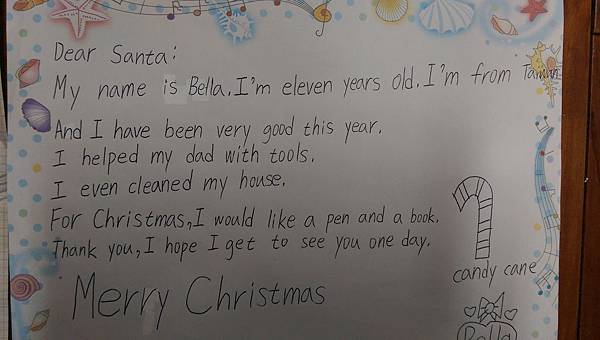 Dear Santa:
My name is Bella. I'm eleven years old. I'm from Taiwan
And I have been very good this year.
I helped my dad with tools.
I even cleaned my house.
For Christmas, I would like a pen and a book.
Thank you, I hope I get to see you one day.
candy cane
Merry Christmas
Bella